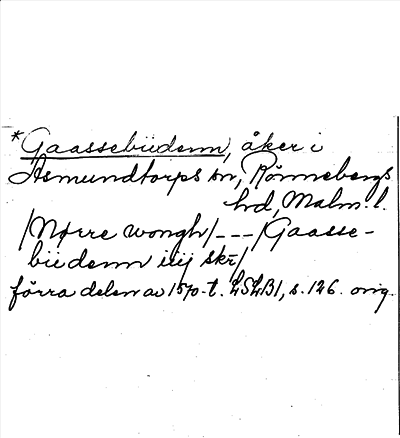 *Gaassebiidenn, åker i
Asmundtorps sn, Rönnebergs
hd, Malm. l.
/Nørre wongh/ - - - /Gaasse-
biidenn iiij skr/
förra delen av 1570-t. LSLB1, s. 126. orig.